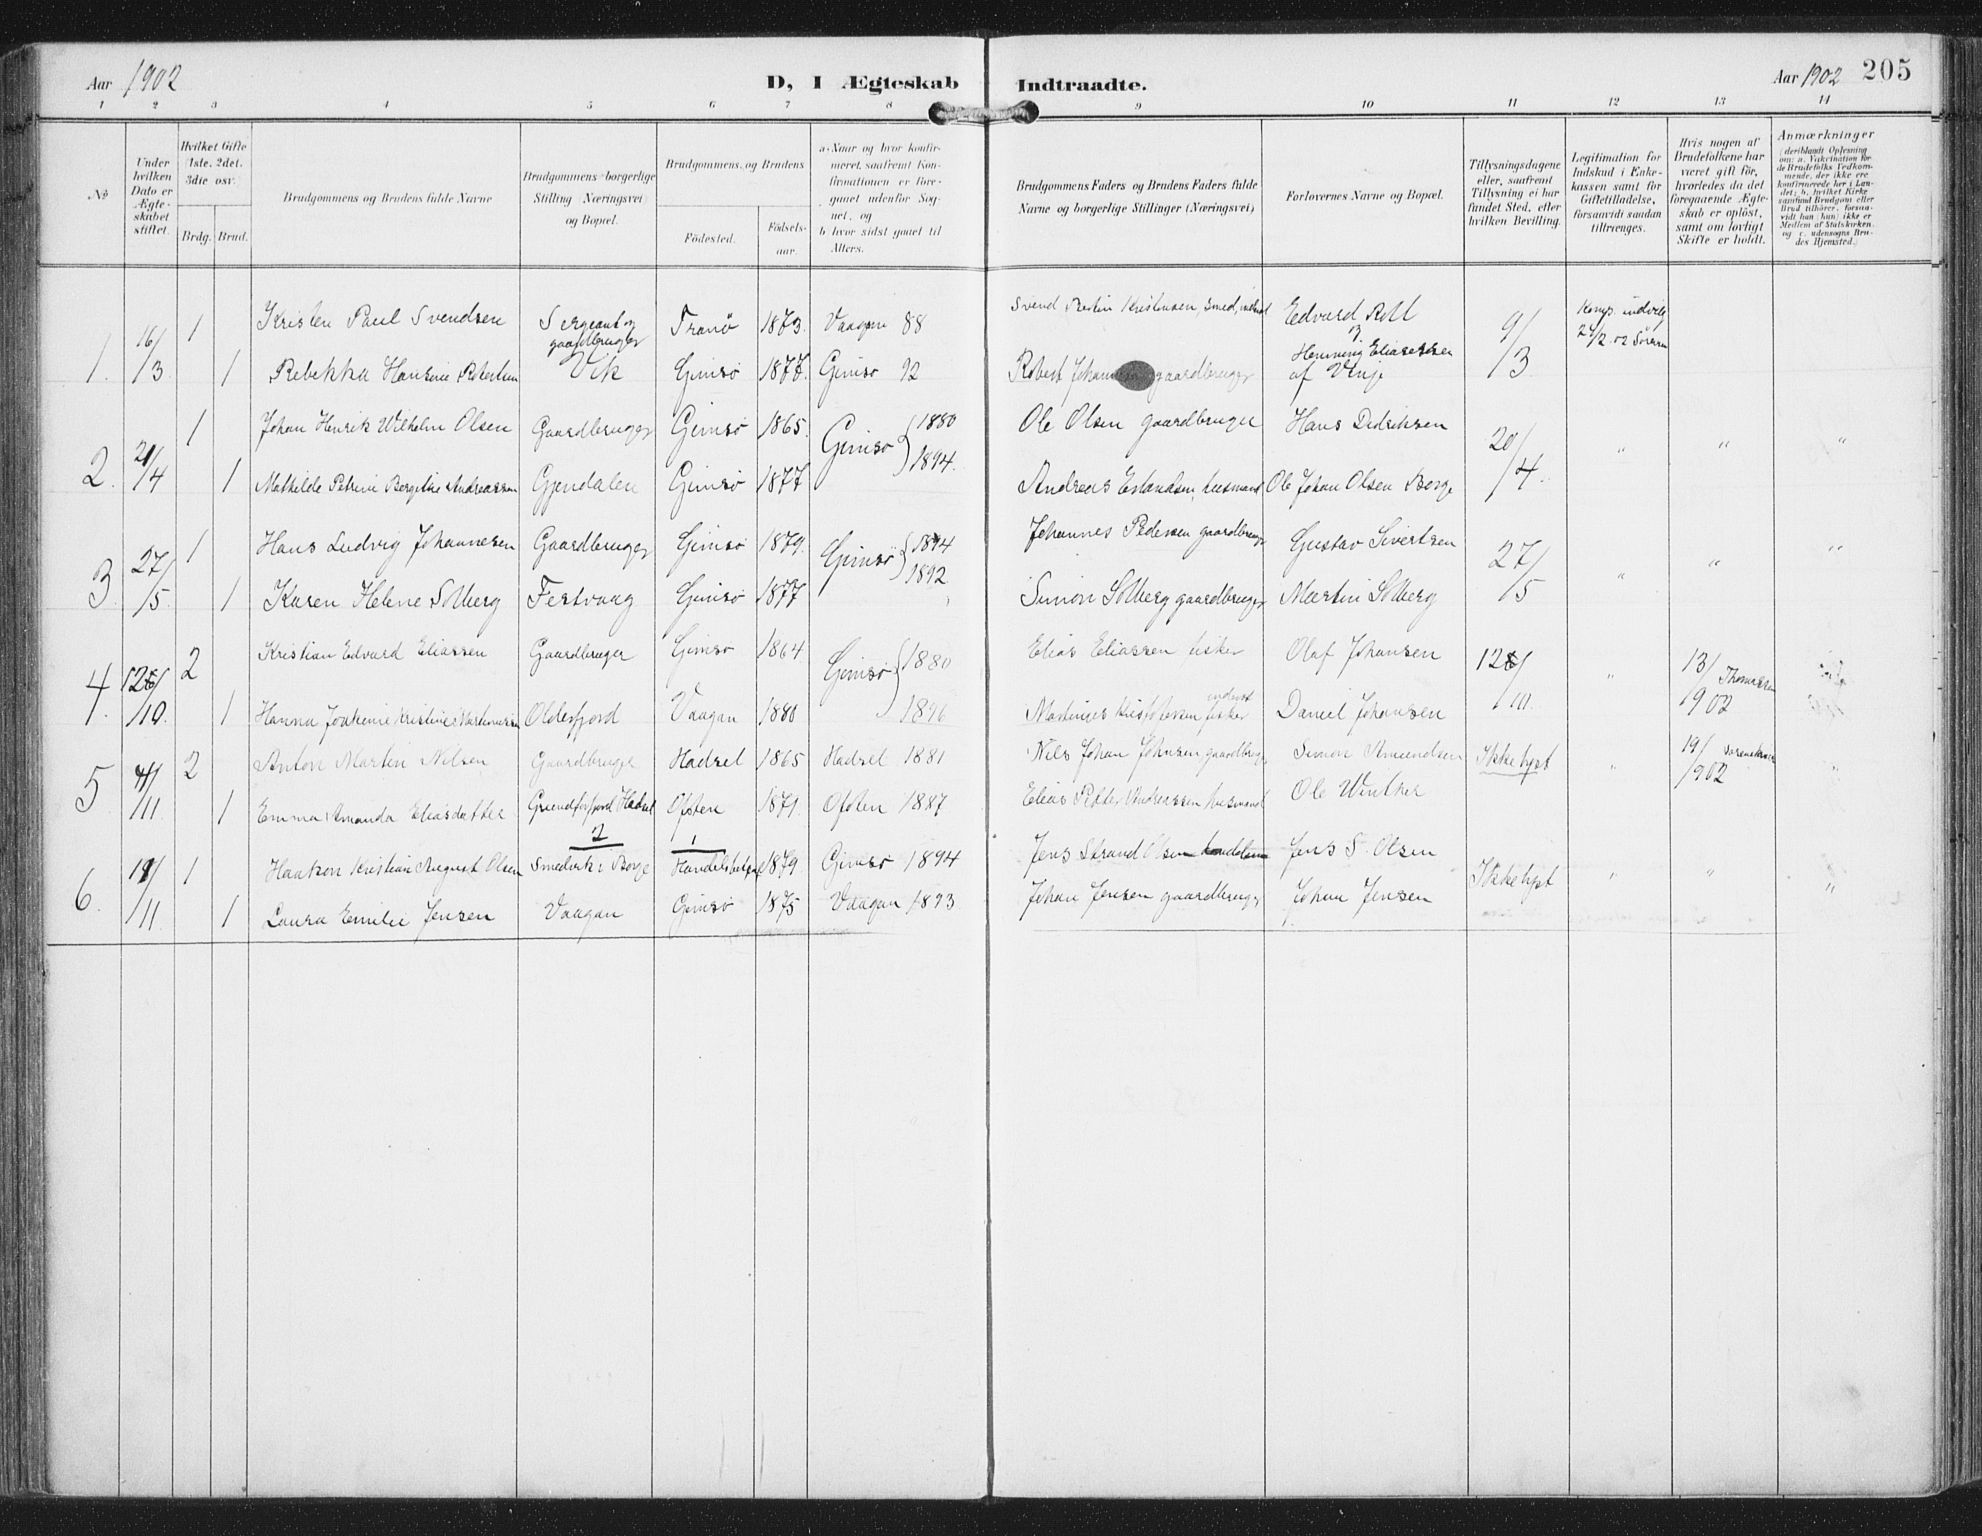 Aar 1902
D, I Ægteskab
Indtraadte.
Aar 1902 205
1 2 3 4 5 6 7 8 9 10 11 12 13 14
No
Under hvilken Dato er Ægteskabet stiftet.
Hvilket Gifte 1ste. 2det. 3die osv.
Brdg. Brud.
Brudgommens og Brudens fulde Navne
Brudgommens borgerlige Stilling (Næringsvei) og Bopæl.
Brudgommens og Brudens
Födested.
Födselsaar.
a. Naar og hvor konfirmeret, saafremt Konfirmationen er foregaaet udenfor Sognet, og
b. hvor sidst gaaet til Alters.
Brudgommens Faders og Brudens Faders fulde Navne og borgerlige Stillinger (Næringsvei)
Forlovernes Navne og Bopæl.
Tillysningsdagene eller, saafremt Tillysning ei har fundet Sted, efter hvilken Bevilling.
Legitimation for Indskud i Enkekassen samt for Giftetilladelse, forsaavidt saadan tiltrænges.
Hvis nogen af Brudefolkene har været gift för, hvorledes da det foregaaende Ægteskab er oplöst, samt om lovligt Skifte er holdt.
Anmærkninger (deriblandt Oplysning om: a. Vakcination for de Brudefolks Vedkommende, der ikke ere konfirmerede her i Landet; b. hvilket Kirkesamfund Brudgom eller Brud tilhörer, forsaavidt han (hun) ikke er Medlem af Statskirken, og c. udensogns Brudes Hjemsted.)
1. 16/3 1 Kristen Paul Svendsen Sergeant og gaardbruger Tranö 1873. Vaagan 88 Svend Kristensen Smed, Edvard Roll 9/3 Komp. indvilg 24/2.02
1 Rebekka Hansine Robertsen Vik Gimsö 1877. Gimsö 92 Robert gaardbruger Henning Eliassen af Vinje
2. 21/4 1 Johan Henrik Wilhelm Olsen Gaardbruger Gimsö 1865. Gimsö 1880 Ole Olsen gaardbruger Hans Didriksen 20/4 " " "
1 Mathilde Petrine Bergitte Andreassen Gjendalen Gimsö 1877 1894. Andreas Erlandsen, husmand Ole Johan Olsen Borge
3. 27/5. 1 Hans Ludvig Johannesen Gaardbruger Gimsö 1879. Gimsö 1894 Johannes Pedersen gaardbruger Gustav Sivertsen 27/5 " " "
1 Karen Helene Solberg Festvaag Gimsö 1877 1892. Simon Solberg gaardbruger Martin Solberg
4. 12/10. 2 Kristian Edvard Eliassen Gaardbruger Gimsö 1864 Gimsö 1880 Elias Eliassen fisker Olaf Johansen 12/10. " 13/1902 Thomassen
1 Hanna Joakime Kristine Martinussen Oldersfjord Vaagan 1880 1896 Martinus Kristofersen fisker Daniel Johansen
5 4/11. 2 Anton Martin Nilsen Gaardbruger Hadsel 1865 Hadsel 1881 Nils Johan Johnsen gaardbruger Simon Amundsen Ikke lyst " 19/1902 "
1 Emma Amanda Eliasdatter Grundforfjord Hadsel Ofoten 1871. Ofoten 1887 Elias Petter Andreassen husmand Ole Winther
2 1
6. 18/11 1 Haakon Kristian August Olsen Smedvik i Borge Handelsbetjent 1879. Gimsö 1894 Jens Strand Olsen Jens S. Olsen Ikke lyst " " "
1 Laura Emilie Jensen Vaagan Gimsö 1875 Vaagan 1893 Johan Jensen gaardbruger Johan Jensen